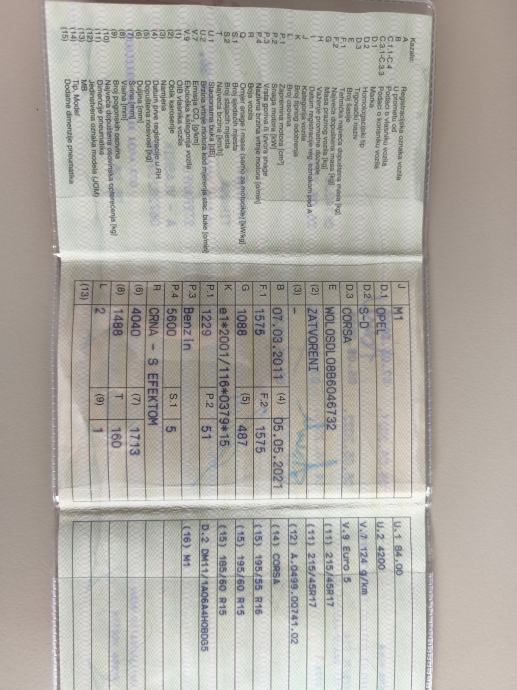 Kazalo:
A Registracijska oznaka vozila
B U prometu od
C.1.1-C.4 Podaci o vlasniku vozila
C.3.1-C.3.3 Podaci o korisniku vozila
D.1 Marka
D.2 Homologacijski tip
D.3 Trgovački naziv
E Broj šasije
F.1 Tehnička najveća dopuštena masa [kg]
F.2 Najveća dopuštena masa [kg]
G Masa praznog vozila [kg]
H Važenje prometne dozvole
I Datum registracije reg. oznakom pod A
J Kategorija vozila
K Broj homologacijskog odobrenja
L Broj osovina
P.1 Zapremina motora [cm³]
P.2 Snaga motora [kW]
P.3 Vrsta goriva ili izvora snage
P.4 Nazivna brzina vrtnje motora [o/min]
R Boja vozila
Q Omjer snage i mase (samo za motocikle) [kW/kg]
S.1 Broj sjedećih mjesta
S.2 Broj stajaćih mjesta
T Najveća brzina [km/h]
U.1 Stacionarna buka [db]
U.2 Brzina vrtnje motora kod mjerenja stac. buke [o/min]
V.7 Emisija CO₂ [g/km]
V.9 Ekološka kategorija vozila
(1) OIB vlasnika vozila
(2) Oblik karoserije
(3) Namjena
(4) Datum prve registracije u RH
(5) Dopuštena nosivost [kg]
(6) Dužina [mm]
(7) Širina [mm]
(8) Visina [mm]
(9) Broj pogonskih osovina
(10) Najveća dopuštena osovinska opterećenja [kg]
(11) Dimenzije pneumatika
(12) Jedinstvena oznaka modela (JOM)
(13) MB
(14) Tip, Model
(15) Dodatne dimenzije pneumatika
J M1
D.1 OPEL
D.2 S-D
D.3 CORSA
E W0L0SDL08B6046732
(2) ZATVORENI
(3) -
B 07.03.2011 (4) 05.05.2021
F.1 1575 F.2 1575
G 1088 (5) 487
K e1*2001/116*0379*15
P.1 1229 P.2 51
P.3 Benzin
P.4 5600 S.1 5
R CRNA - S EFEKTOM
(6) 4040 (7) 1713
(8) 1488 T 160
L 2 (9) 1
(13)
U.1 84.00
U.2 4200
V.7 124 g/km
V.9 Euro 5
(11) 215/45R17
(11) 215/45R17
(12) A.0499.00741.02
(14) CORSA
(15) 195/55 R16
(15) 195/60 R15
(15) 185/60 R15
D.2 DM11/1A06A4HOBDG5
(16) M1